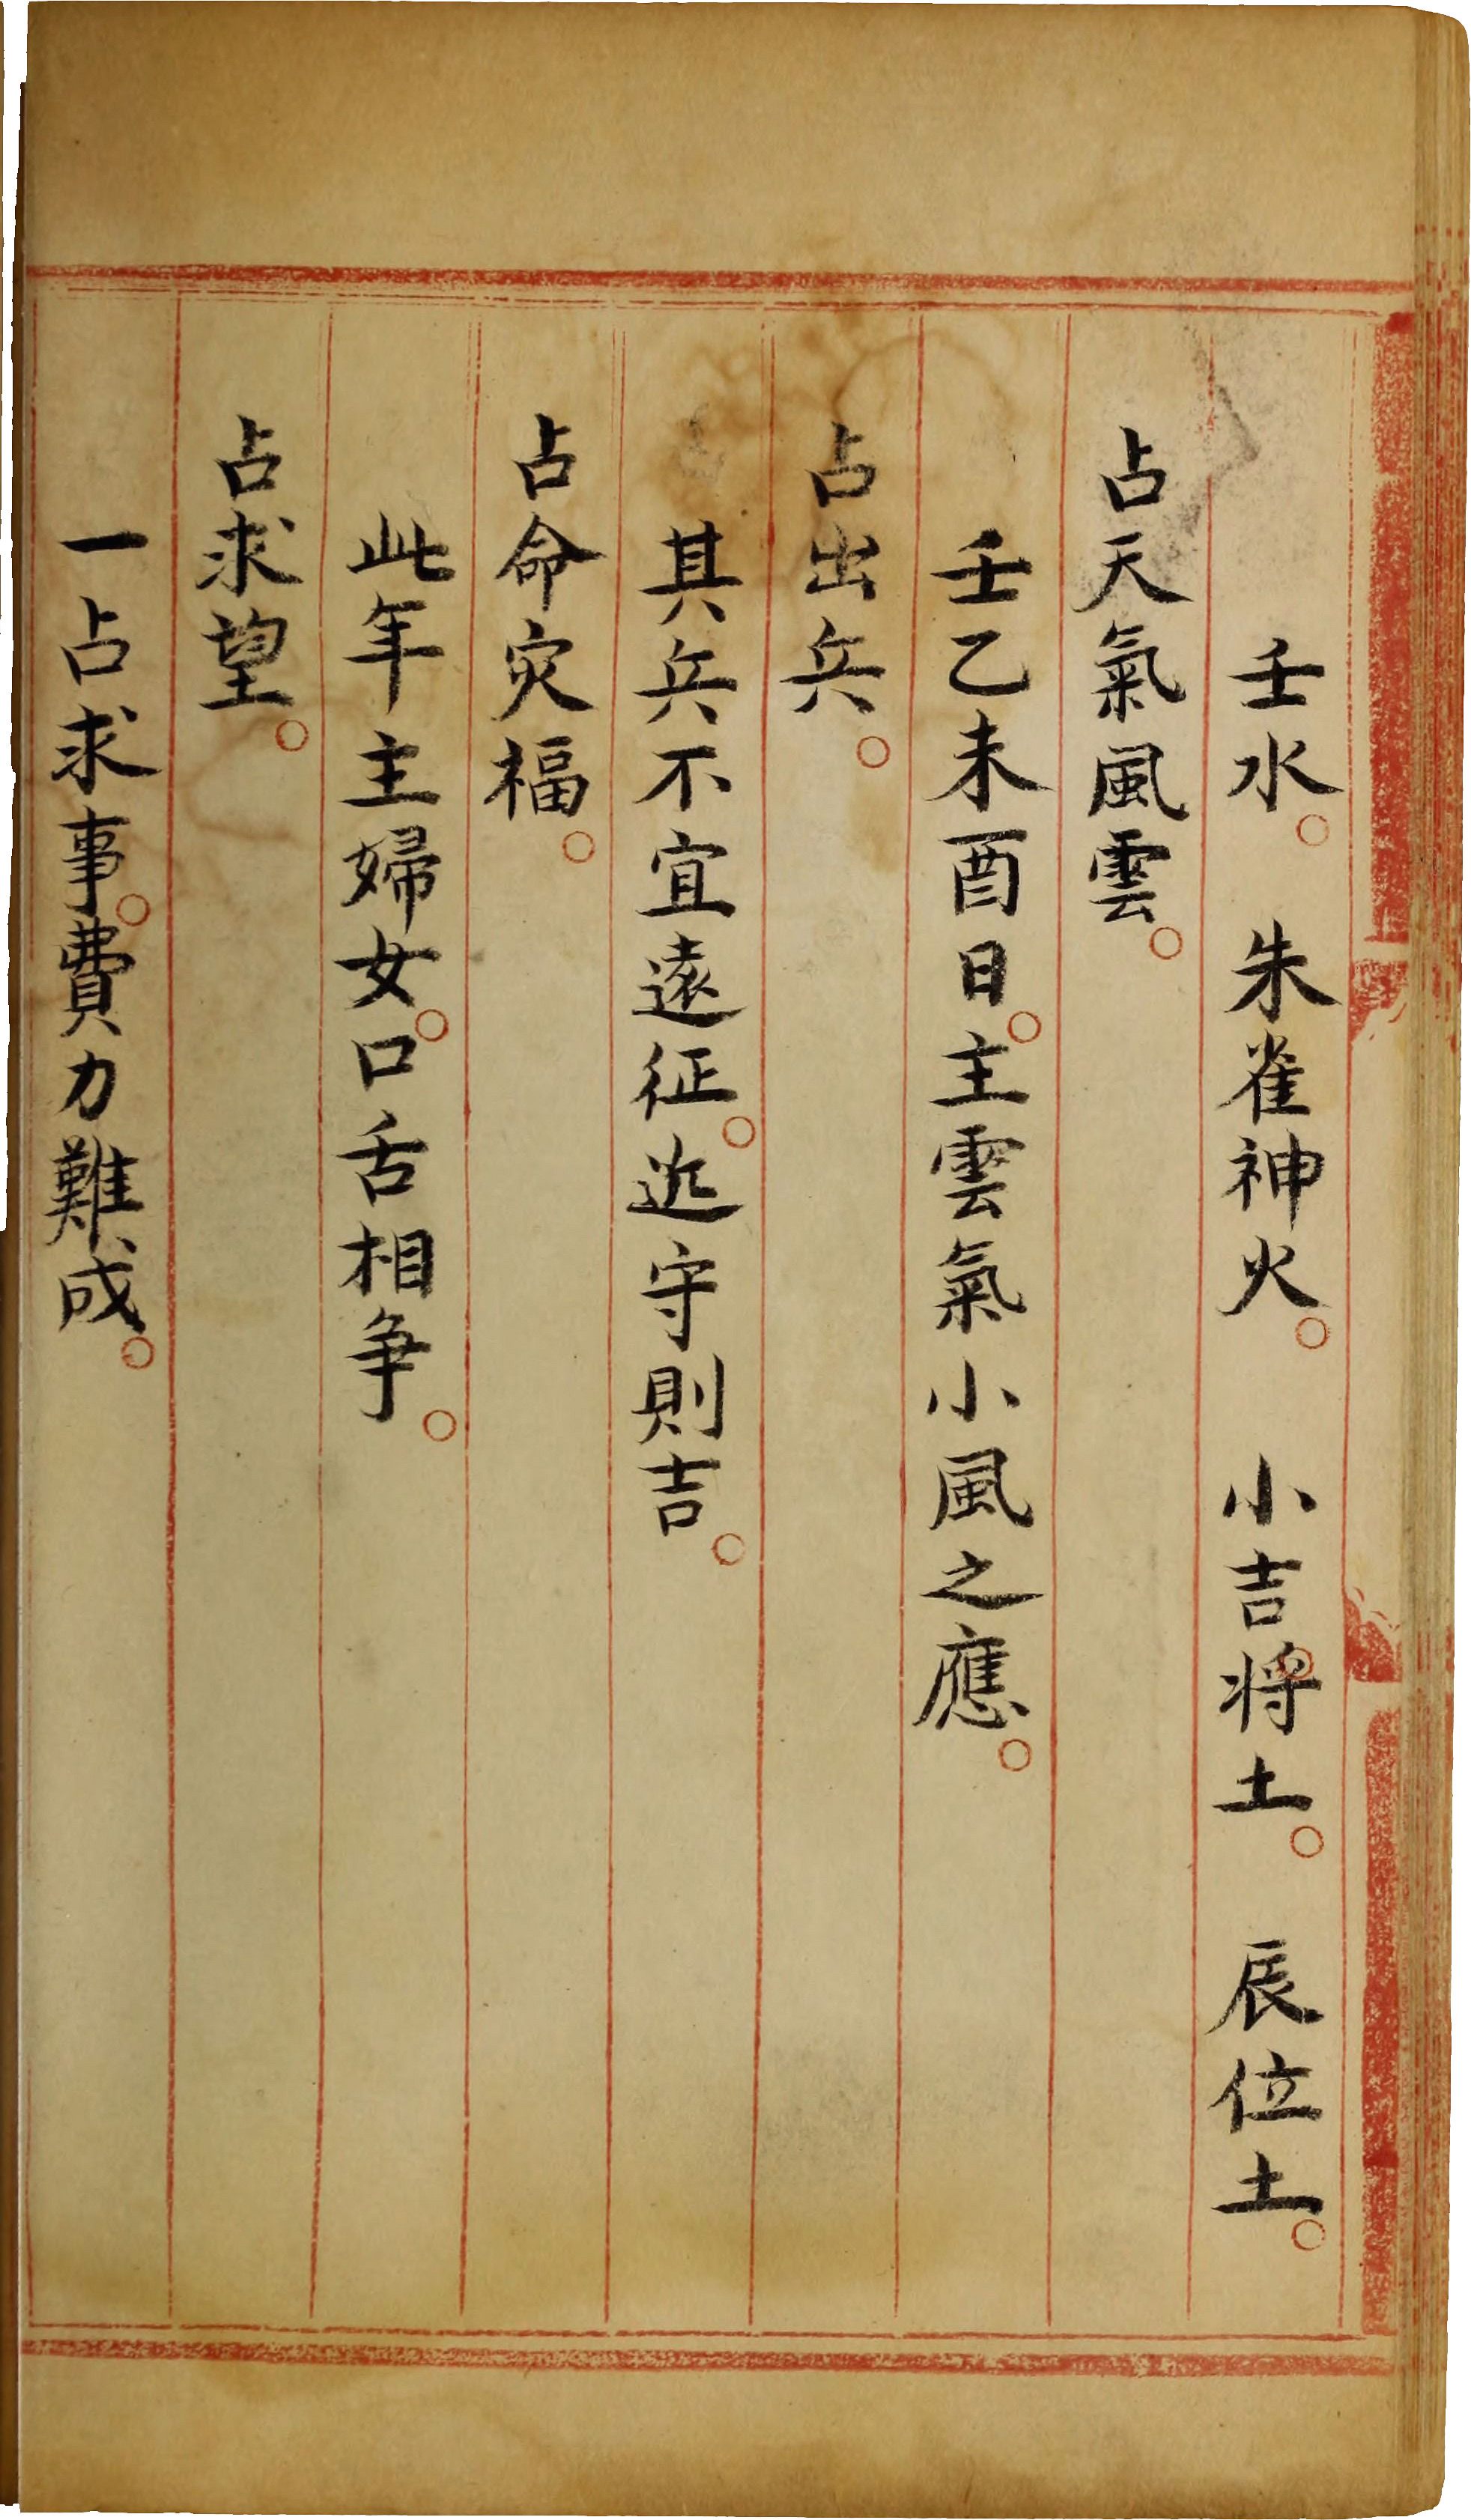 壬水。　朱雀神火。　小吉将土。　辰位土。
占天氣風雲。
壬乙未酉日。主雲氣小風之應。
占出兵。
其兵不宜遠征。近守則吉。
占命灾福。
此年主婦女。口舌相争。
占求望。
一占求事。費力難成。